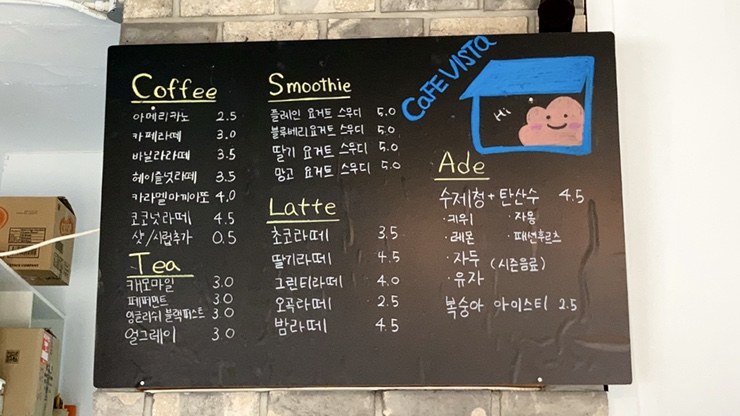 CaFE VISTA
Hi
Coffee
아메리카노 2.5
카페라떼 3.0
바닐라라떼 3.5
헤이즐넛라떼 3.5
카라멜마끼아또 4.0
코코넛라떼 4.5
샷/시럽추가 0.5
Tea
캐모마일 3.0
페퍼민트 3.0
잉글리쉬 블랙퍼스트 3.0
얼그레이 3.0
Smoothie
플레인 요거트 스무디 5.0
블루베리 요거트 스무디 5.0
딸기 요거트 스무디 5.0
망고 요거트 스무디 5.0
Latte
초코라떼 3.5
딸기라떼 4.5
그린티라떼 4.0
오곡라떼 2.5
밤라떼 4.5
Ade
수제청+탄산수 4.5
·키위 ·자몽
·레몬 ·패션후르츠
·자두 (시즌음료)
·유자
복숭아 아이스티 2.5